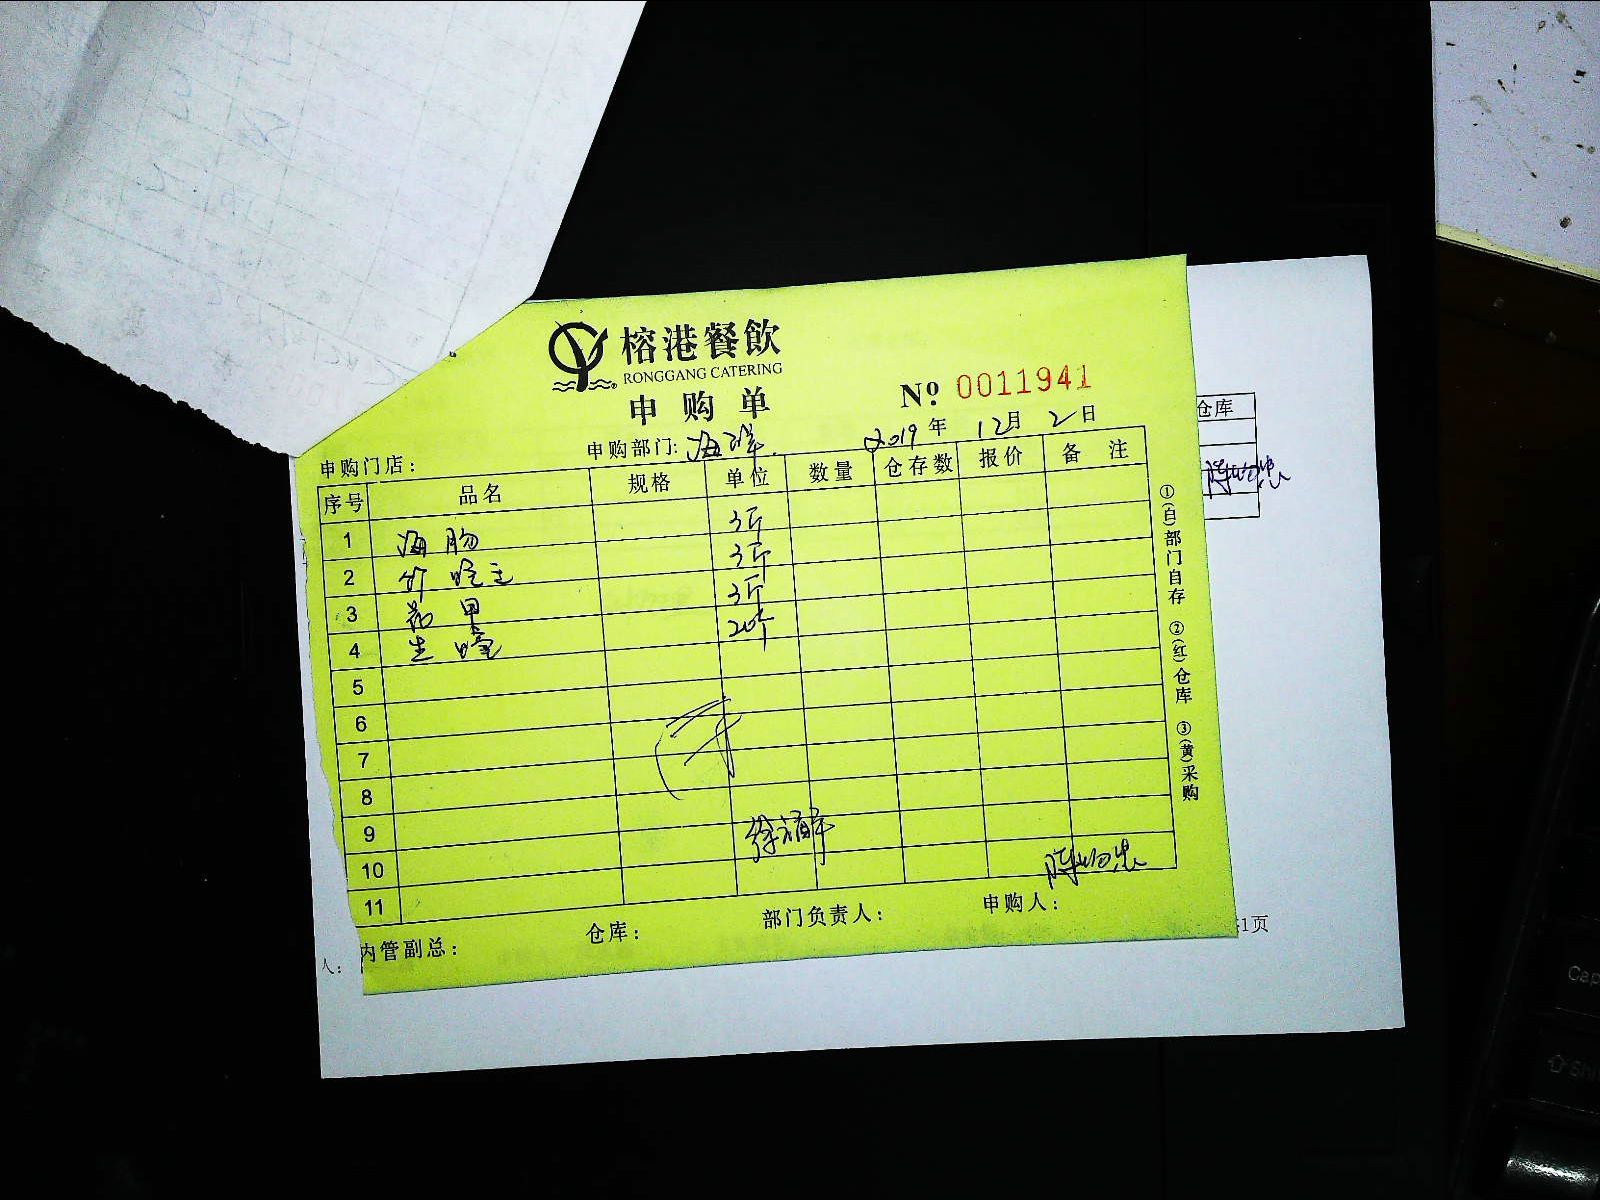 榕港餐飲
RONGGANG CATERING
申购单
№ 0011941
申购门店：
申购部门: 海鲜
2019年 12月 2日
序号 品名 规格 单位 数量 仓存数 报价 备 注
1 海肠 3斤
2 竹蛏王 3斤
3 花甲 3斤
4 生蠔 20个
5
6
7
8
9
10
11
内管副总：
仓库：
部门负责人：
申购人：
①(白)部门自存 ②(红)仓库 ③(黄)采购
仓库
人：
1页